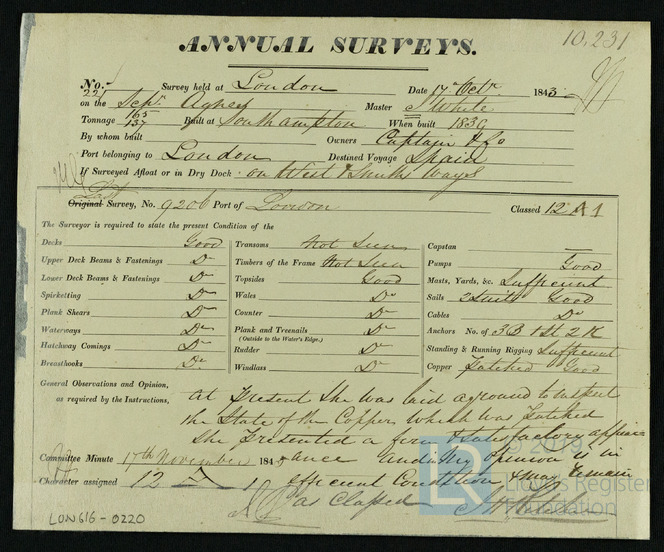 10,231
ANNUAL SURVEYS.
No. 221 Survey held at London Date 17 Octr. 1843
on the Agnes Master White
Tonnage 165 137 Built at Southampton When built 1839
By whom built Owners Captain & Co
Port belonging to London Destined Voyage Spain
If Surveyed Afloat or in Dry Dock on West & Smiths Ways
Last
Original Survey, No. 9206 Port of London Classed 12 A 1
The Surveyor is required to state the present Condition of the
Decks Good
Upper Deck Beams & Fastenings Do
Lower Deck Beams & Fastenings Do
Spirketting Do
Plank Shears Do
Waterways Do
Hatchway Comings Do
Breasthooks Do
Transoms Not Seen
Timbers of the Frame Not Seen
Topsides Good
Wales Do
Counter Do
Plank and Treenails Do
(Outside to the Water's Edge.)
Rudder Do
Windlass Do
Capstan —
Pumps Good
Masts, Yards, &c. Sufficient
Sails 2 Suits Good
Cables Do
Anchors No. of 3B 1St 2K
Standing & Running Rigging Sufficient
Copper Patched Good
General Observations and Opinion,
as required by the Instructions,
At Present She was laid aground to inspect
the State of the Copper which was Patched
She presented a firm & satisfactory appear
ance and in My opinion is in
efficient Condition & may remain
as Classed
Committee Minute 17th November 1843
Character assigned 12 A 1
LON616-0220
© 2019
LR
Lloyd's Register
Foundation